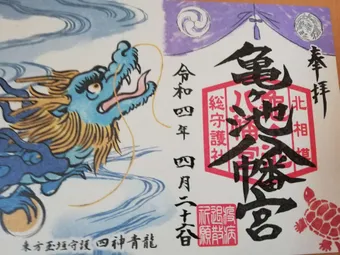 奉拝
北相模
亀ヶ池八幡宮
総守護社
令和四年 四月二十六日
疫病
退散
祈願
東方玉垣守護 四神青龍